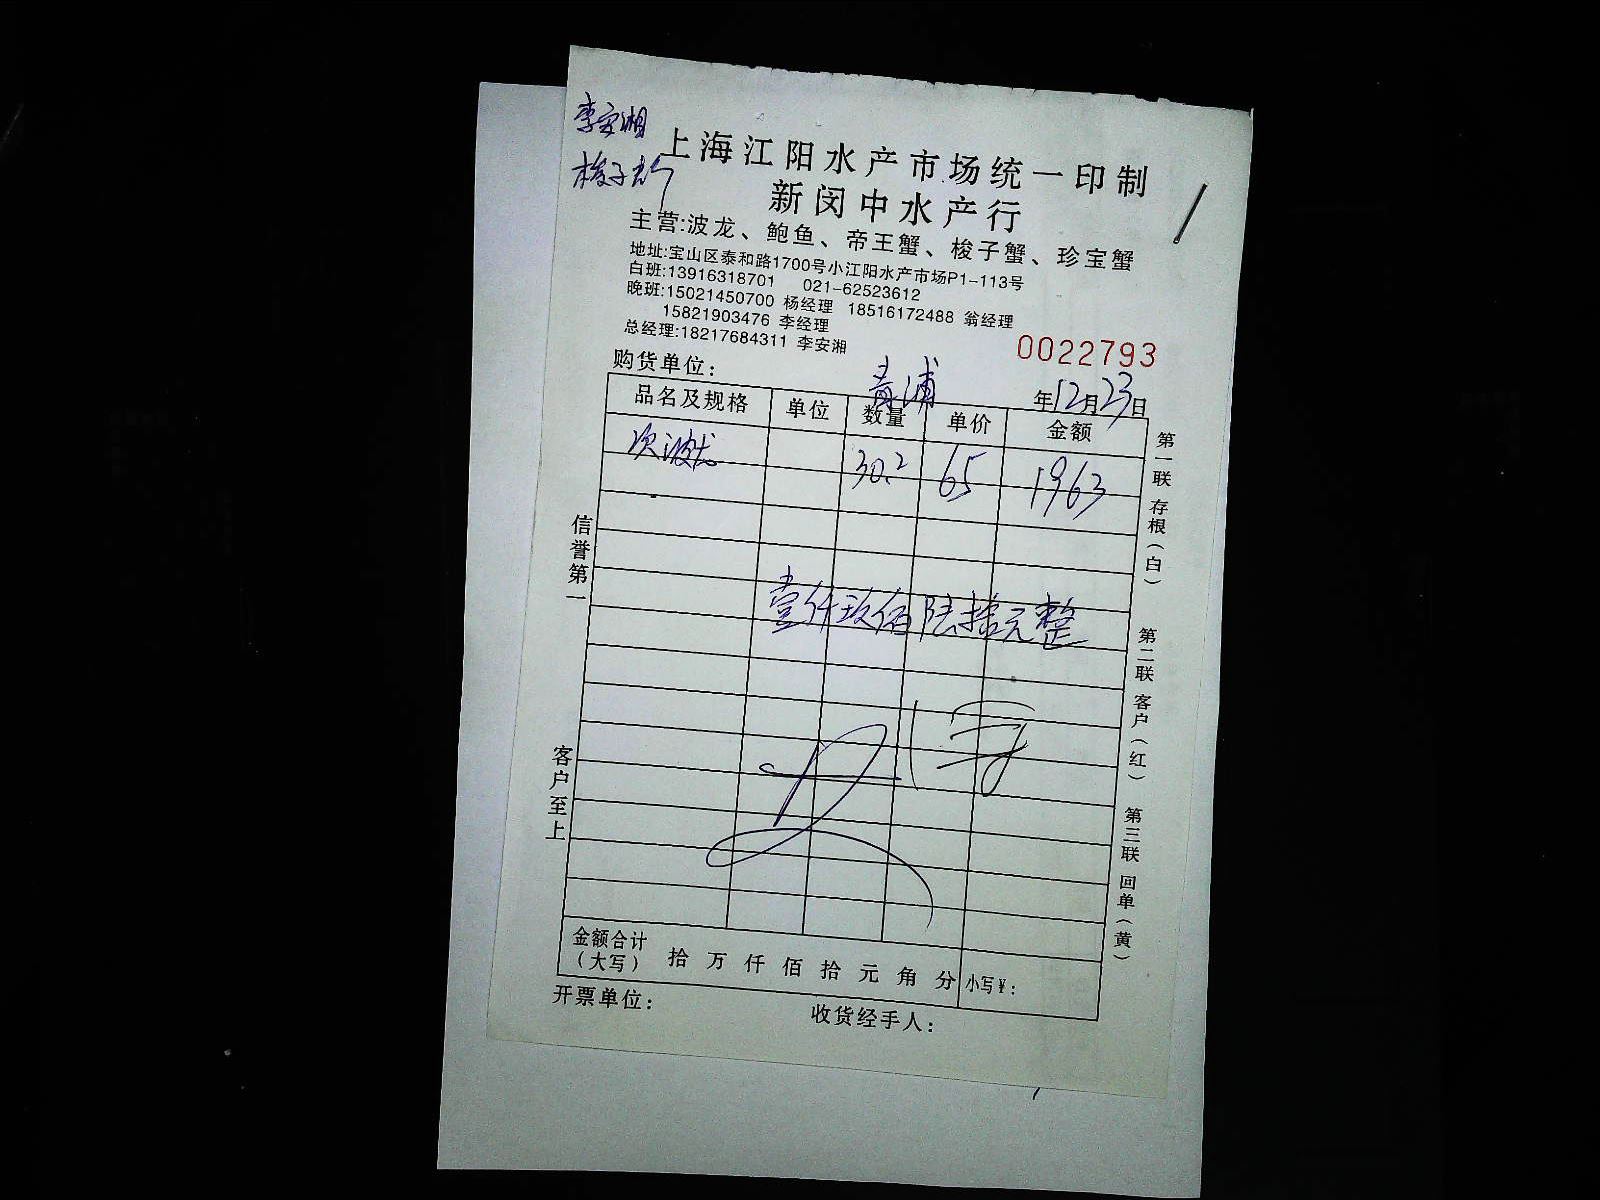 李安湘
梭子
上海江阳水产市场统一印制
新闵中水产行
主营:波龙、鲍鱼、帝王蟹、梭子蟹、珍宝蟹
地址:宝山区泰和路1700号小江阳水产市场P1-113号
白班:13916318701 021-62523612
晚班:15021450700 杨经理 18516172488 翁经理
15821903476 李经理
总经理:18217684311 李安湘
0022793
购货单位: 青浦 年12月23日
品名及规格 单位 数量 单价 金额
次波龙 30.2 65 1963
壹仟玖佰陆拾元整
信誉第一
客户至上
第一联 存根(白)
第二联 客户(红)
第三联 回单(黄)
金额合计(大写) 拾 万 仟 佰 拾 元 角 分 小写¥:
开票单位: 收货经手人: